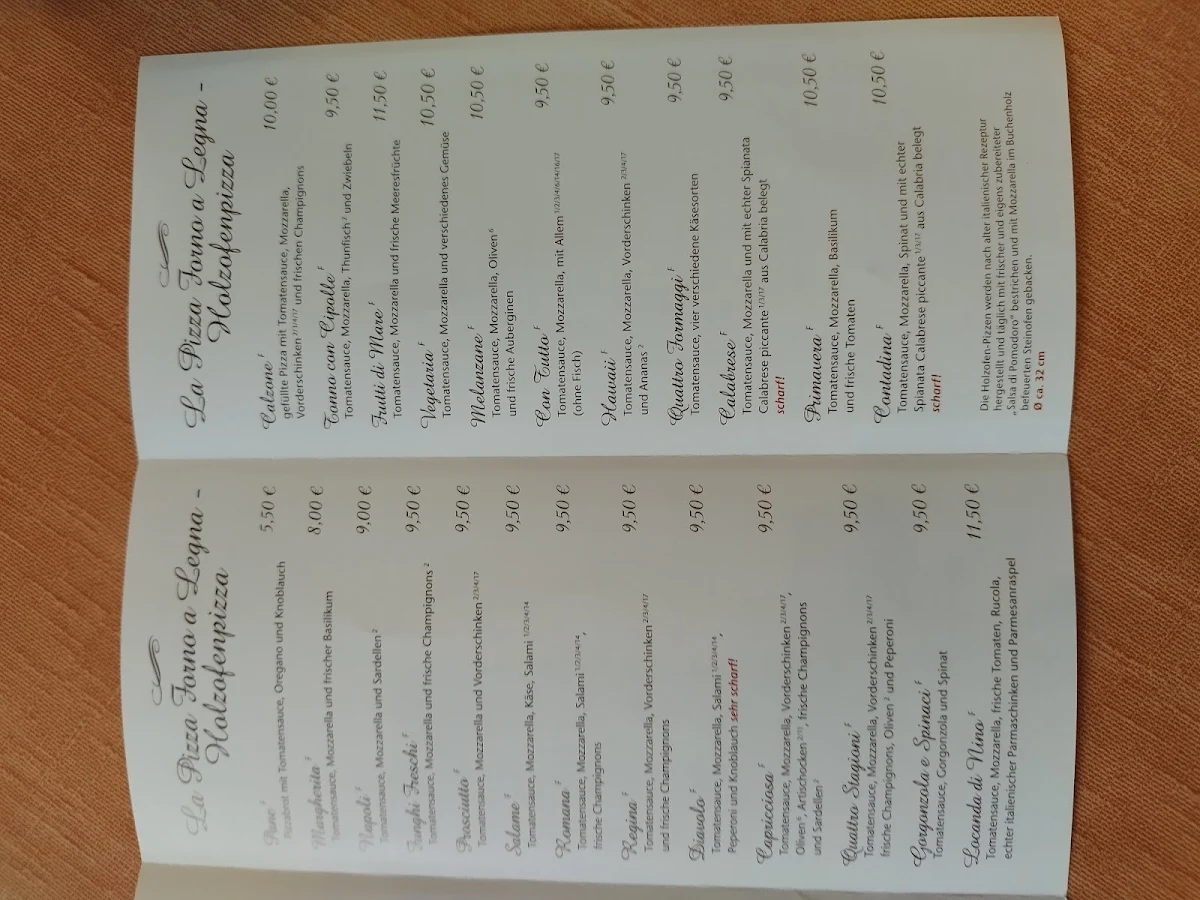 La Pizza Forno a Legna -
Holzofenpizza
Pane F 5,50 €
Pizzabrot mit Tomatensauce, Oregano und Knoblauch
Margherita F 8,00 €
Tomatensauce, Mozzarella und frischer Basilikum
Napoli F 9,00 €
Tomatensauce, Mozzarella und Sardellen 2
Funghi Freschi F 9,50 €
Tomatensauce, Mozzarella und frische Champignons 2
Prosciutto F 9,50 €
Tomatensauce, Mozzarella und Vorderschinken 2/3/4/17
Salame F 9,50 €
Tomatensauce, Mozzarella, Käse, Salami 1/2/3/4/14
Romana F 9,50 €
Tomatensauce, Mozzarella, Salami 1/2/3/4/14,
frische Champignons
Regina F 9,50 €
Tomatensauce, Mozzarella, Vorderschinken 2/3/4/17
und frische Champignons
Diavolo F 9,50 €
Tomatensauce, Mozzarella, Salami 1/2/3/4/14,
Peperoni und Knoblauch sehr scharf!
Capricciosa F 9,50 €
Tomatensauce, Mozzarella, Vorderschinken 2/3/4/17,
Oliven 6, Artischocken 2/11, frische Champignons
und Sardellen 2
Quattro Stagioni F 9,50 €
Tomatensauce, Mozzarella, Vorderschinken 2/3/4/17
frische Champignons, Oliven 2 und Peperoni
Gorgonzola e Spinaci F 9,50 €
Tomatensauce, Gorgonzola und Spinat
Locanda di Nino F 11,50 €
Tomatensauce, Mozzarella, frische Tomaten, Rucola,
echter italienischer Parmaschinken und Parmesanraspel
La Pizza Forno a Legna -
Holzofenpizza
Calzone F 10,00 €
gefüllte Pizza mit Tomatensauce, Mozzarella,
Vorderschinken 2/3/4/17 und frischen Champignons
Tonno con Cipolle F 9,50 €
Tomatensauce, Mozzarella, Thunfisch 2 und Zwiebeln
Frutti di Mare F 11,50 €
Tomatensauce, Mozzarella und frische Meeresfrüchte
Vegetaria F 10,50 €
Tomatensauce, Mozzarella und verschiedenes Gemüse
Melanzane F 10,50 €
Tomatensauce, Mozzarella, Oliven 6
und frische Auberginen
Con Tutto F 9,50 €
Tomatensauce, Mozzarella, mit Allem 1/2/3/4/6/14/16/17
(ohne Fisch)
Hawaii F 9,50 €
Tomatensauce, Mozzarella, Vorderschinken 2/3/4/17
und Ananas 2
Quattro Formaggi F 9,50 €
Tomatensauce, vier verschiedene Käsesorten
Calabrese F 9,50 €
Tomatensauce, Mozzarella und mit echter Spianata
Calabrese piccante 1/3/17 aus Calabria belegt
scharf!
Primavera F 10,50 €
Tomatensauce, Mozzarella, Basilikum
und frische Tomaten
Contadina F 10,50 €
Tomatensauce, Mozzarella, Spinat und mit echter
Spianata Calabrese piccante 1/3/17 aus Calabria belegt
scharf!
Die Holzofen-Pizzen werden nach alter italienischer Rezeptur
hergestellt und täglich mit frischer und eigens zubereiteter
„Salsa di Pomodoro" bestrichen und mit Mozzarella im Buchenholz
befeuerten Steinofen gebacken.
Ø ca. 32 cm